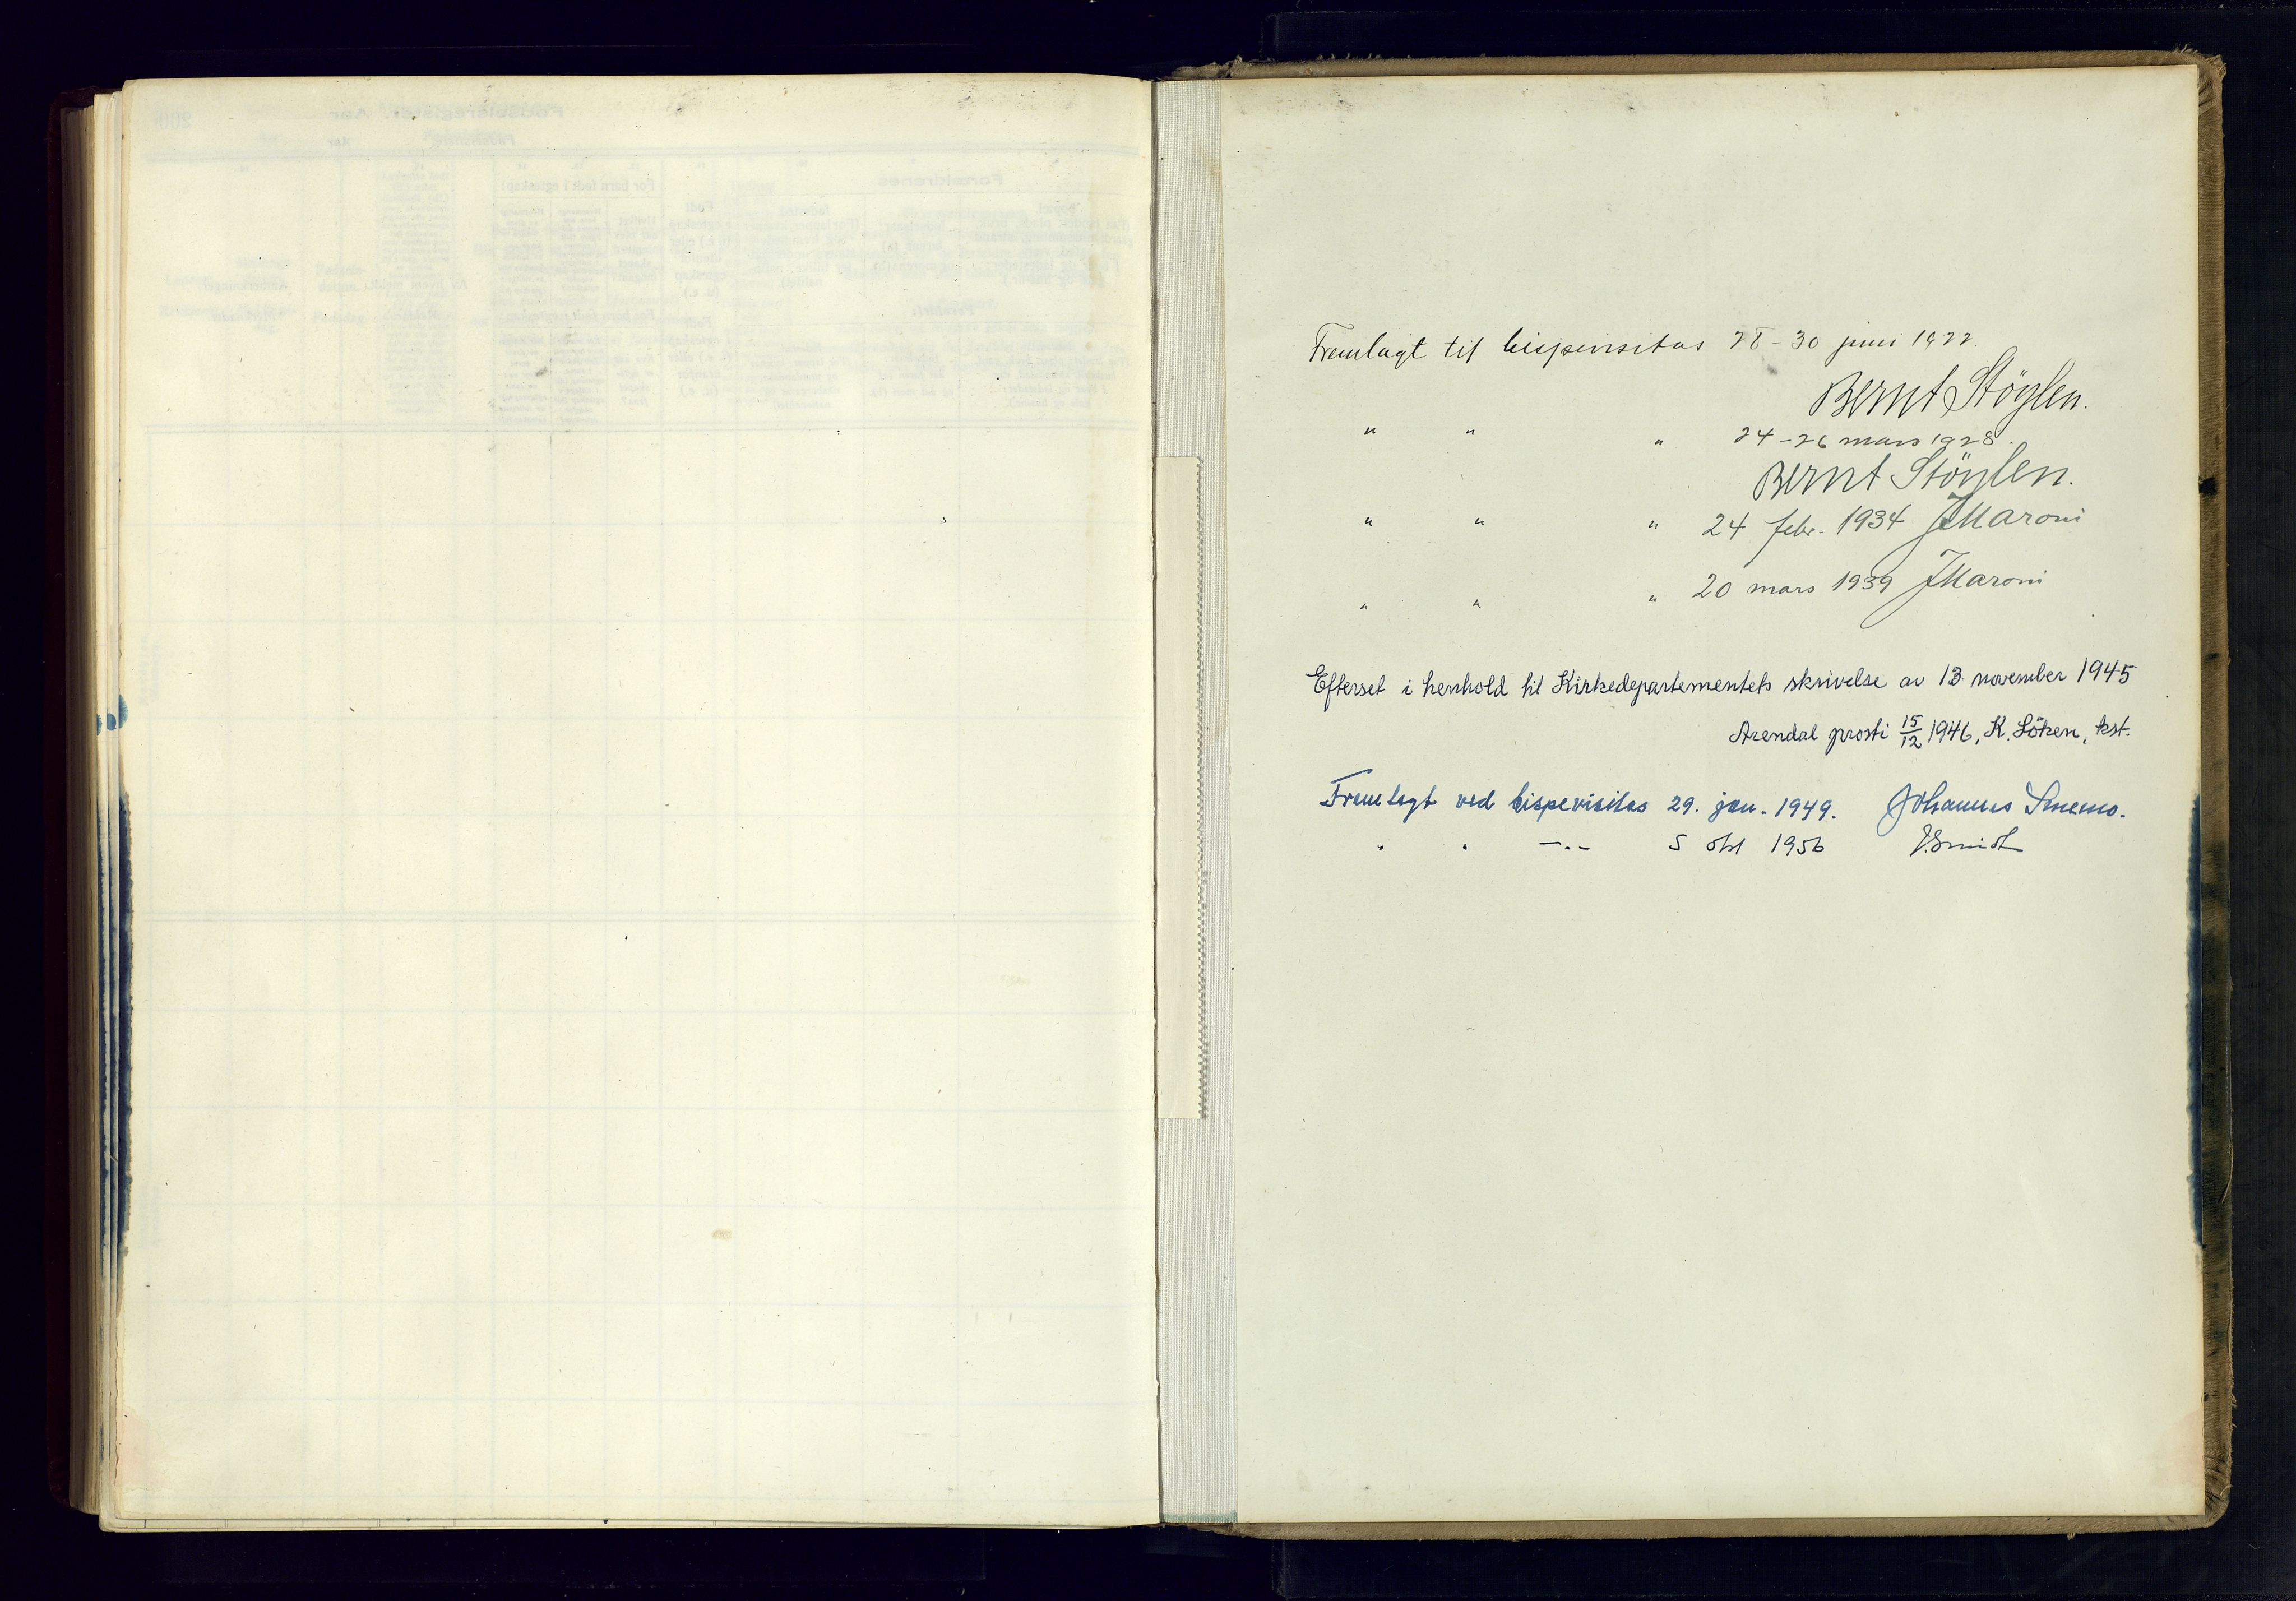 Fremlagt til bispevisitas 28-30 juni 1922.
Bernt Stöylen.
" " " 24-26 mars 1928.
Bernt Stöylen.
" " " 24 febr. 1934 JMaroni
" " " 20 mars 1939 JMaroni
Efterset i henhold til Kirkedepartementets skrivelse av 13. november 1945
Arendal prosti 15/12 1946, K. Löken, kst.
Fremlagt ved bispevisitas 29. jan. 1949. Johannes Smemo.
" " -"- 5 okt 1956 J.Smidt